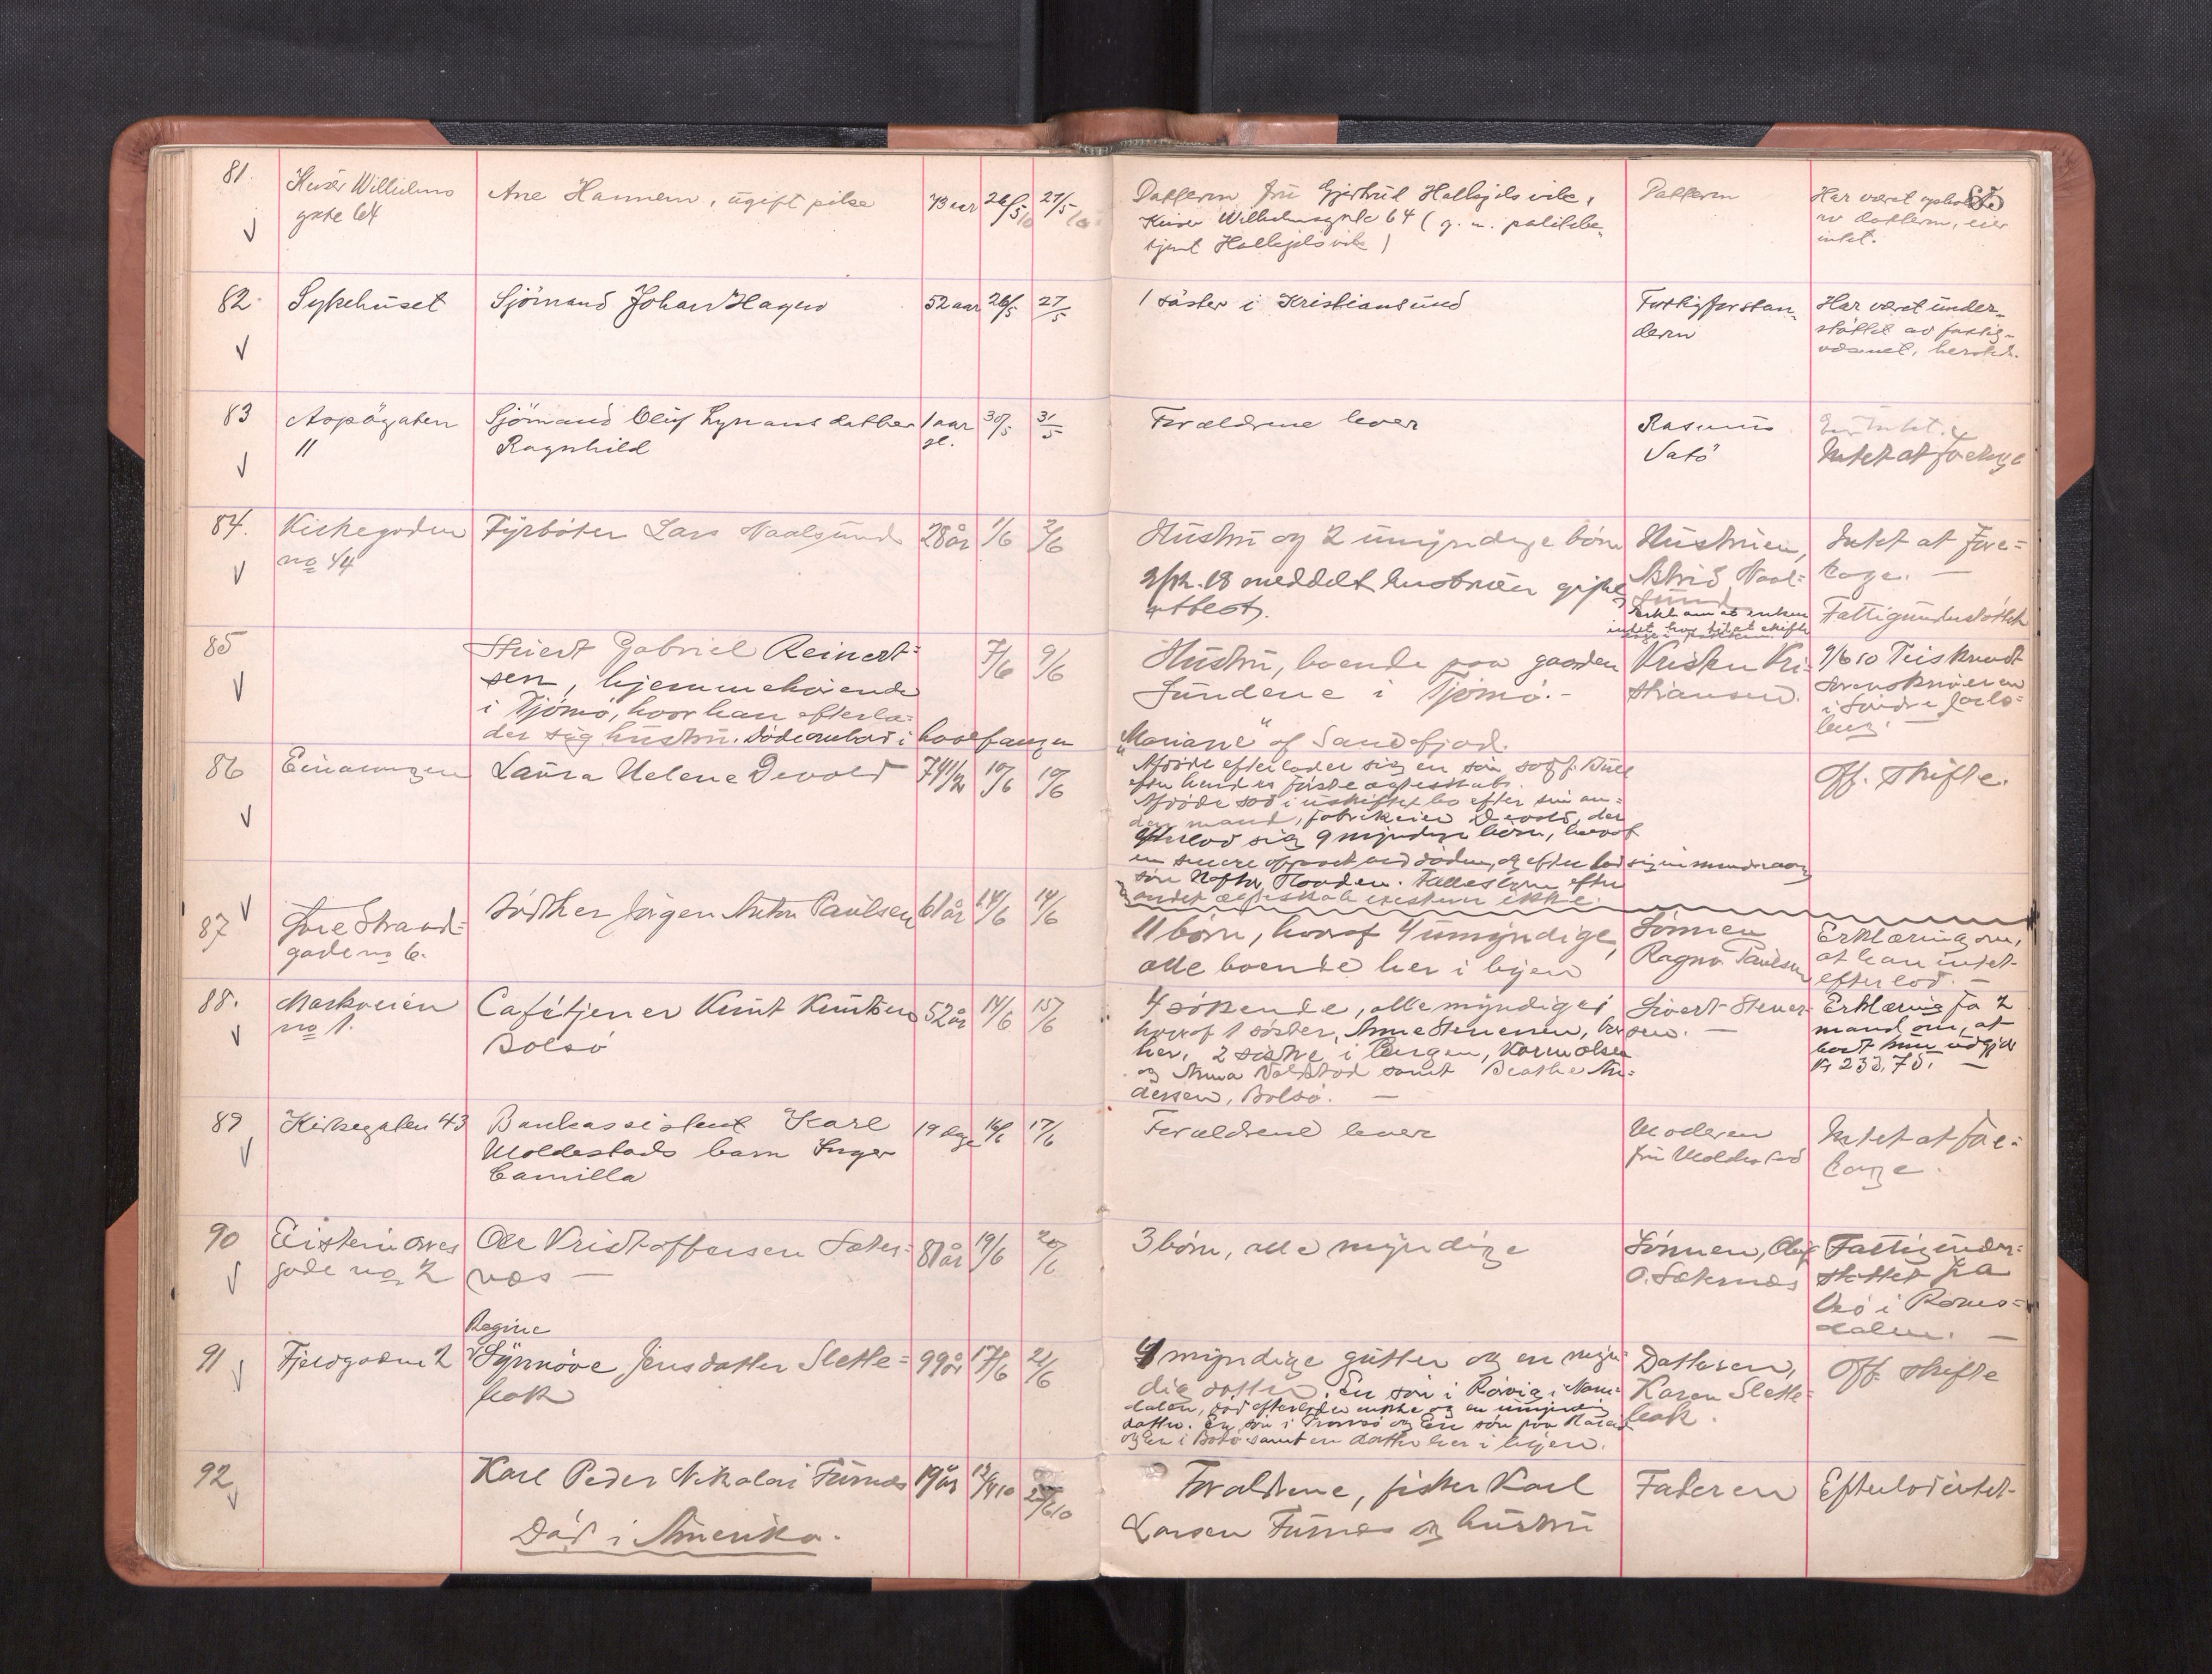 85
81.
Keiser Wilhelms
gate 64
Ane Hannem, ugift pike
73 aar
26/5 10
27/5 10
Datteren fru Gjertrud Halkjelsvik,
Keiser Wilhelmsgate 64 (g. m. politibe-
tjent Halkjelsvik)
Datteren
Har været
av datteren, eier
intet.
82.
Sykehuset
Sjömand Johan Hagen
52 aar
26/5
27/5
1 søster i Kristiansund
Fattigforstan-
deren
Har været under-
støttet av fattig-
væsenet, hersteds.
83
Aspögaten
11
Sjömand Oluf Lyrans datter
Ragnhild
1 aar
gl.
30/5
31/5
Forældrene lever
Rasmus
Vatö
Eier intet.
Intet at foretage
84.
Kirkegaden
no 44
Fyrbøter Lars Naalsund
28 år
1/6
2/6
Hustru og 2 umyndige børn
2/12. 18 meddelt hustruen gifte
attest.
Hustruen,
Astrid Naal-
sund
intet har til at skifte
Intet at fore-
tage. —
Fattigunderstøttet
85
Stuert Gabriel Reinert-
sen, hjemmehørende
i Tjömö, hvor han efterla-
der sig hustru. Døde ombord i hvalfangeren
7/6
9/6
Hustru, boende paa gaarden
Sundene i Tjømø. -
"Mariane" af Sandefjord.
Kristen Kri-
stiansen.
9/6 10 Tilskrevet
Sorenskriveren
i Søndre Jarls-
berg. —
86
Laura Helene Devold
74 1/2
10/6
10/6
Afdøde efterlader sig en søn
efter hendes første ægteskab.
Afdøde sad i uskiftet bo efter sin an-
den mand, fabrikeier Devold, der
efterlod sig 9 myndige børn, hvoraf
en senere ved døden, og efterlod sig en mindreaarig
søn
andet ægteskab existerer ikke.
Off. skifte.
87
Øvre Strand-
gade no 6.
Jørgen Anton Paulsen
61 år
14/6
14/6
11 børn, hvoraf 4 umyndige,
alle boende her i byen
Sønnen
Ragnv. Paulsen
Erklæring om,
at han intet
efterlod. —
88.
Markveien
no 1.
Cafétjener Knut Knutsen
Bolsø
52 år
14/6
15/6
4 søskende, alle myndige,
hvoraf 1 søster, Anne Stenersen, bor
her, 2 søstre i Bergen, Karen Olsen
og Anna samt Beathe An-
dersen, Bolsø. —
Sivert Stener-
sen. —
Erklæring fra 2
mand om, at
boet kun udgjør
Kr 233,75. —
89
Kirkegaten 43
Bankassistent Karl
Moldestads barn Inger
Camilla
19 dage
16/6
17/6
Forældrene lever
Moderen
fru Moldestad
Intet at fore-
tage.
90
gade no 2
Ole Kristoffersen Sæter-
næs —
81 år
19/6
20/6
3 børn, alle myndige
Sønnen, Oluf
O. Sæternæs
Fattigunder-
støttet fra
Veø i Roms-
dalen. —
91
Fjeldgaden 2
Regine
Synnöve Jensdatter Slette-
bak
99 år
17/6
21/6
4 myndige gutter og en myn-
dig datter. En søn i Rørvig i Nam-
dalen, død efterlader enke og en umyndig
datter. En søn i Tromsø og En søn paa
og En i Bodø samt en datter her i byen.
Datteren,
Karen Slette-
bak.
Off skifte
92
Karl Peder Nikolai Furnes
Død i Amerika.
19 år
12/4 10
Forældrene, fisker Karl
Larsen Furnes og hustru
Faderen
Efterlod intet